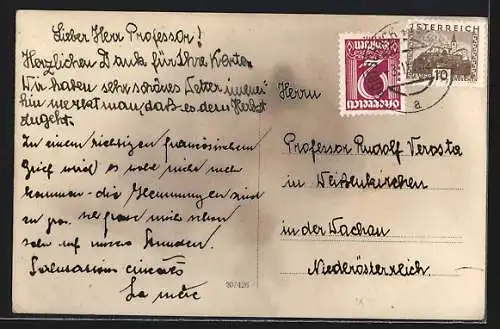 Lieber Herr Professor!
Herzlichen Dank für Ihre Karte.
Wir haben sehr schönes Wetter immer-
hin merkt man, daß es dem Herbst
zugeht.
Zu einem richtigen französischen
Brief wird es wohl nicht mehr
kommen - die Hemmungen sind
zu gross. Ich freue mich schon
sehr auf unsere Stunden.
La mère
Herrn
Professor Rudolf Verosta
in Weißenkirchen
in der Wachau
Niederösterreich.
ÖSTERREICH
10
a